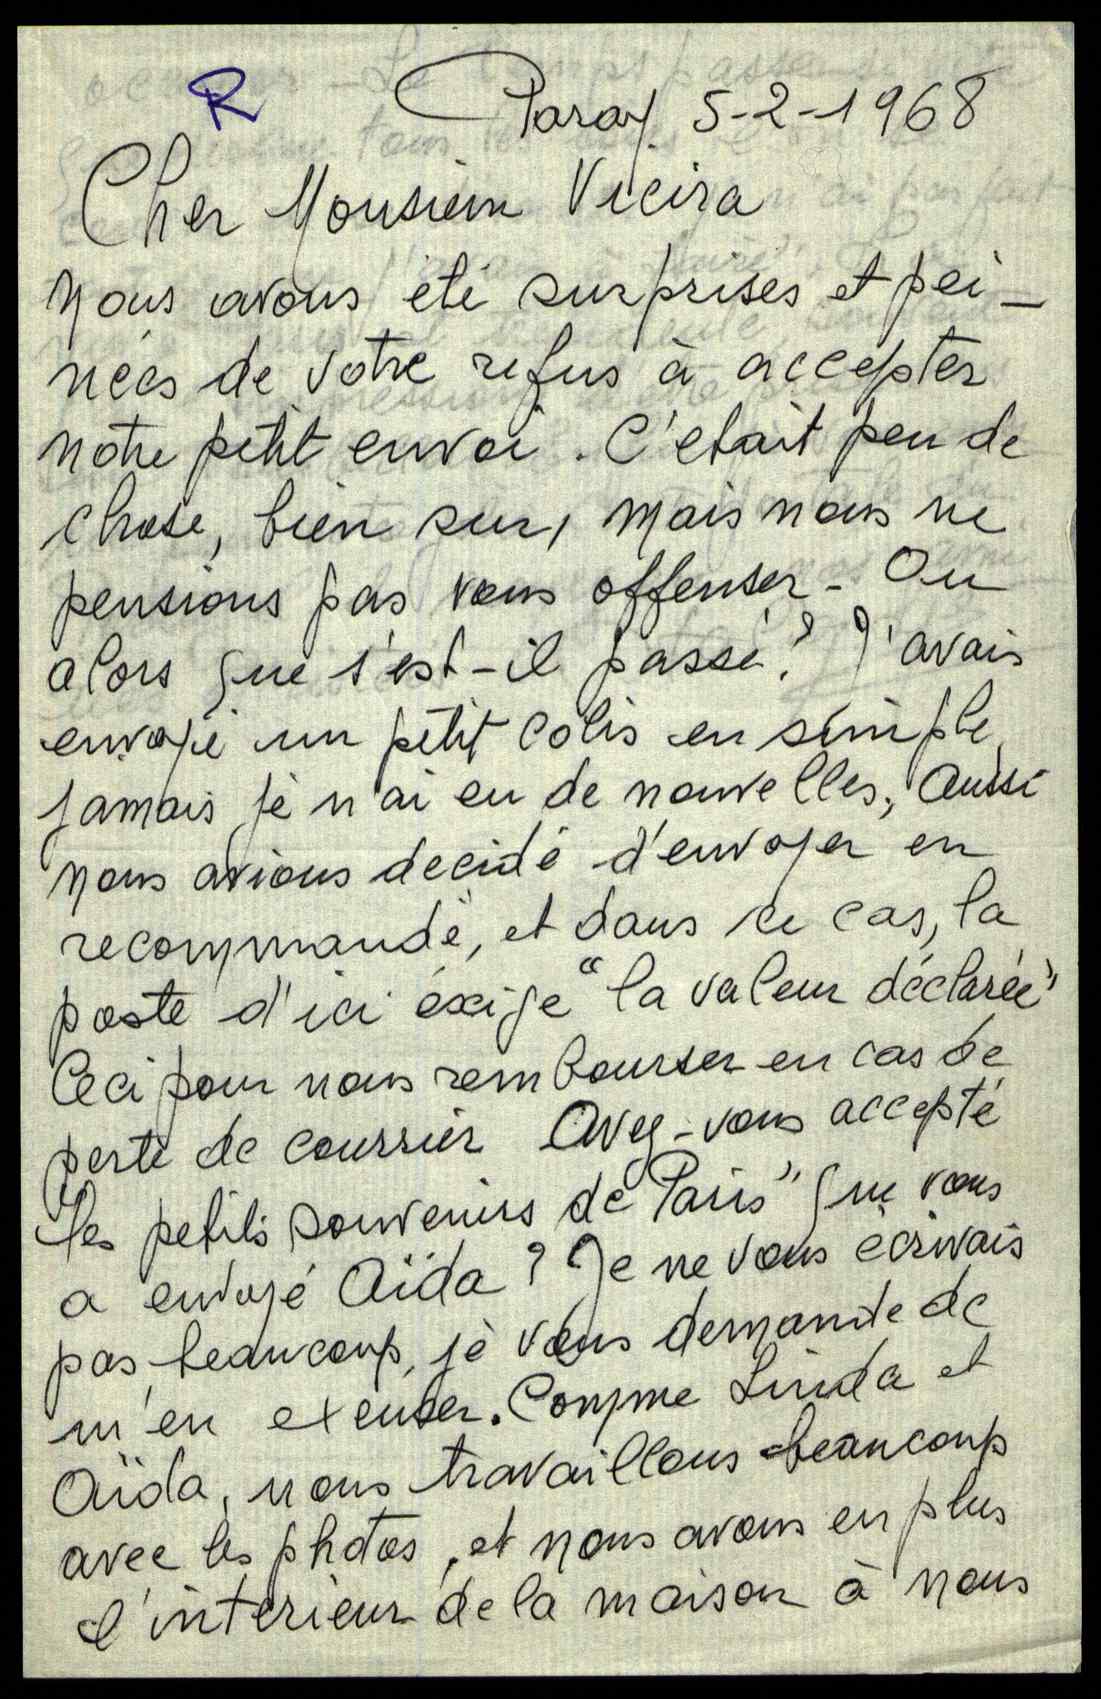 R
Paray 5-2-1968
Cher Monsieur Vieira
Nous avons été surprises et pei-
nées de votre refus à accepter
notre petit envoi. C'etait peu de
chose, bien sur, mais nous ne
pensions pas vous offenser - Ou
alors que s'est-il passé? J'avais
envoyé un petit colis en simple,
jamais je n'ai eu de nouvelles, Aussi
nous avions decidé d'envoyer en
recommandé, et dans ce cas, la
poste d'ici éxige "la valeur déclarée"
Ceci pour nous rembourser en cas de
perte de courrier Avez-vous accepté
"les petits souvenirs de Paris" que vous
a envoyé Aïda? Je ne vous écrivais
pas beaucoup, je vous demande de
m'en excuser. Comme Linda et
Aïda, nous travaillons beaucoup
avec les photos, et nous avons en plus
l'interieur de la maison à nous